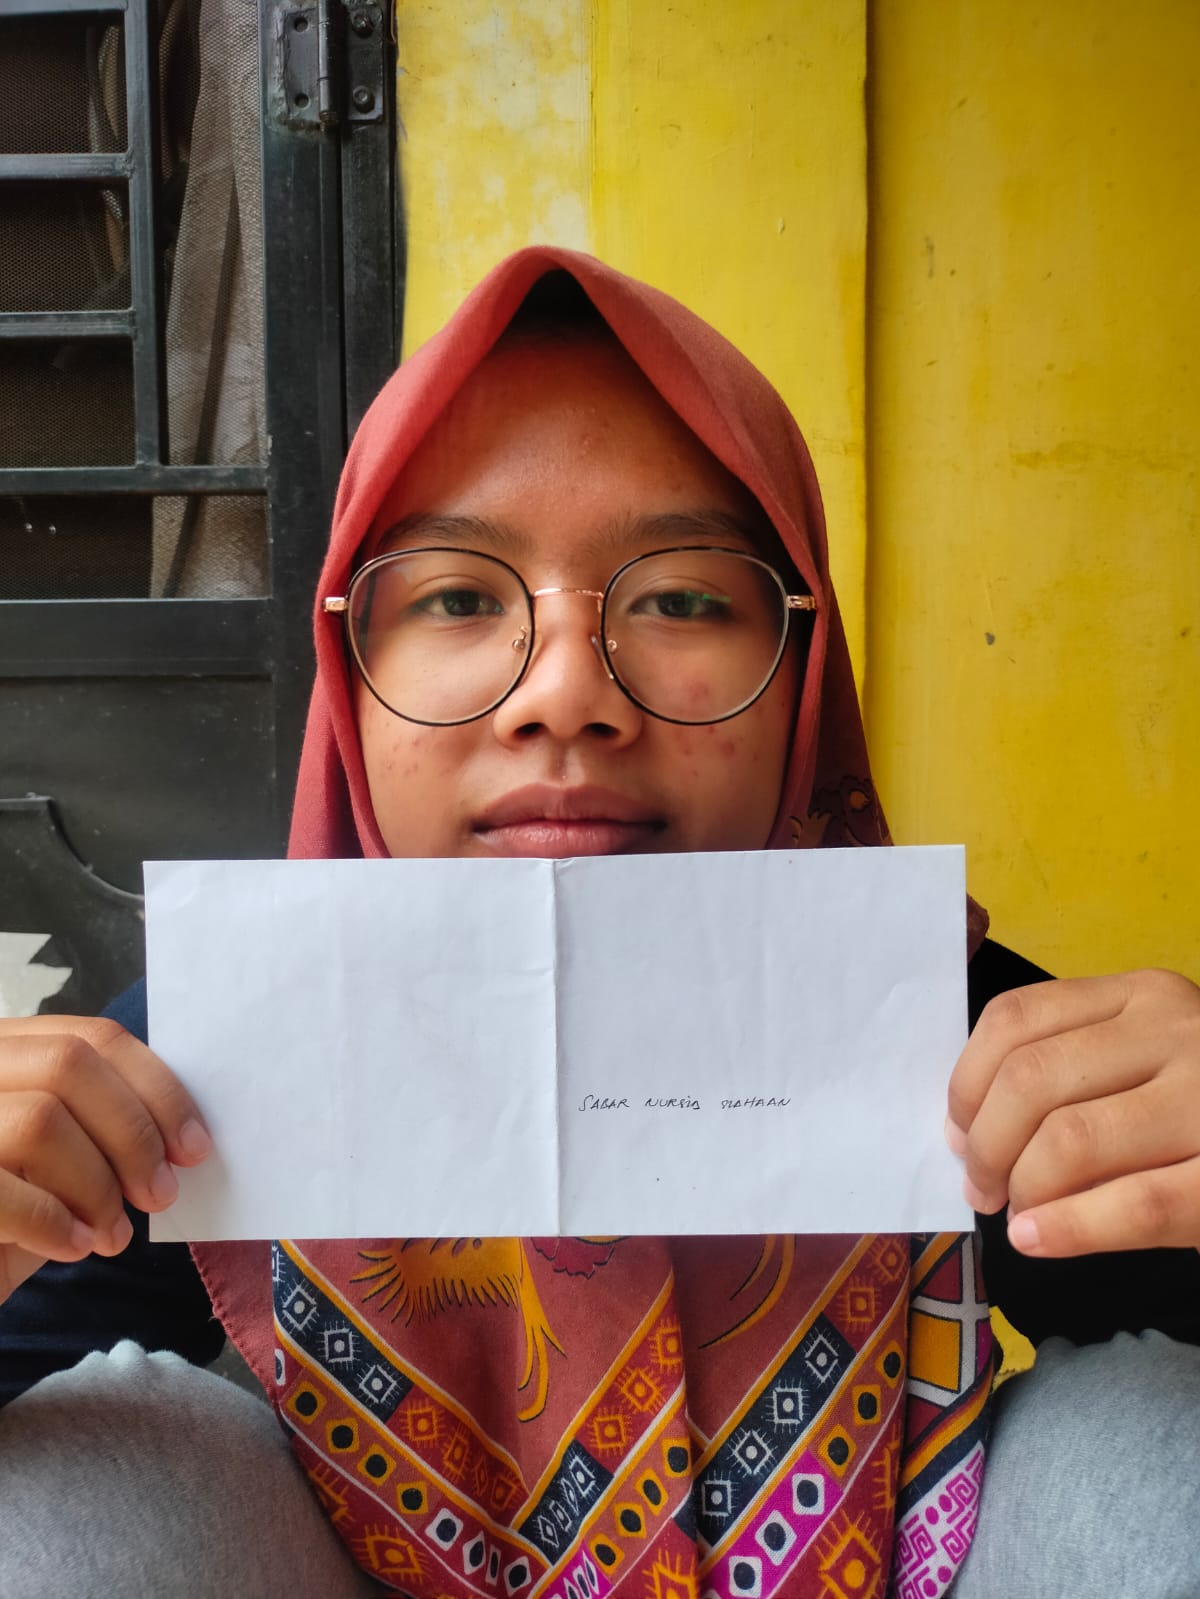 SABAR NURSIA SIAHAAN